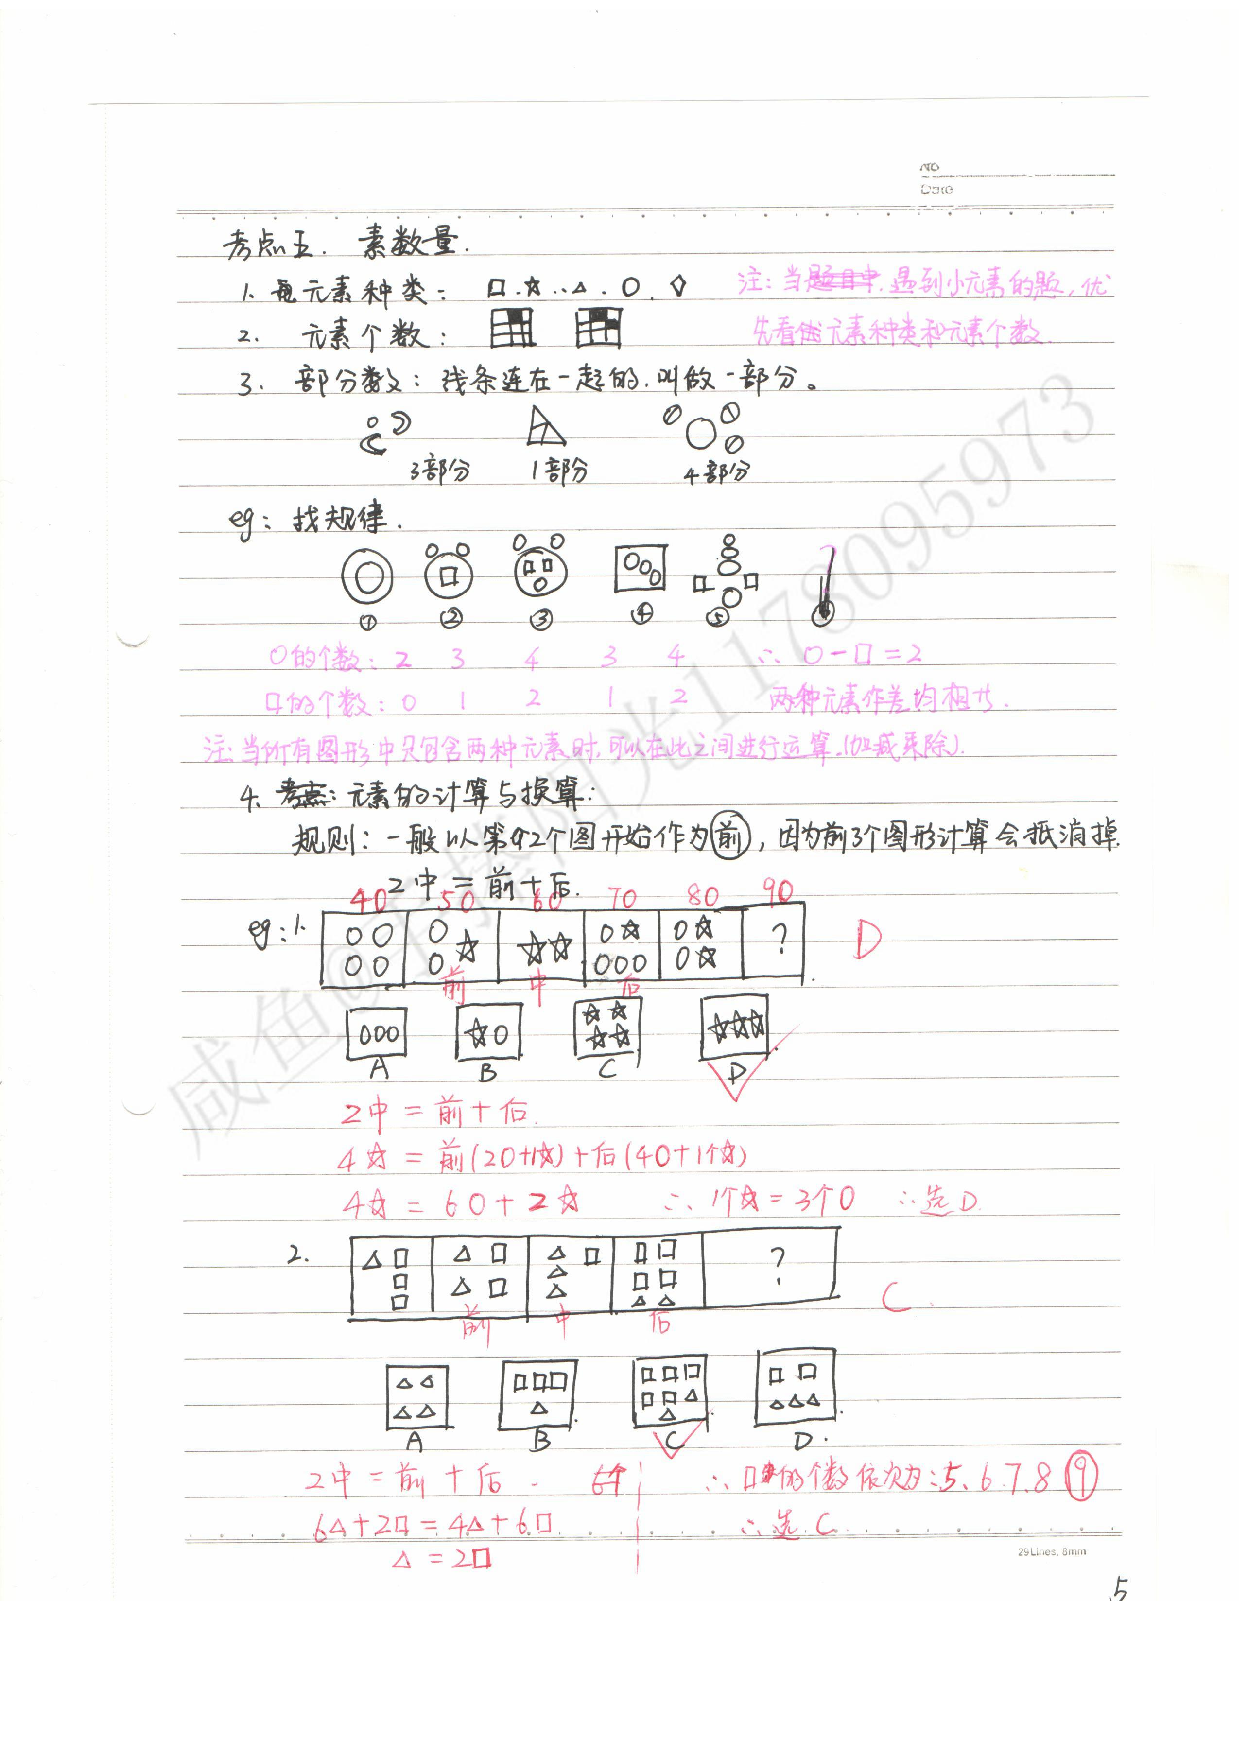 NO
Date
考点五. 素数量.
1. 元素种类: □.☆..△.○.◇ 注:当题目中.遇到小元素的题,优
2. 元素个数: 先看元素种类和元素个数.
3. 部分数: 线条连在一起的.叫做一部分。
3部分 1部分 4部分
eg: 找规律.
① ② ③ ④ ⑤
○的个数: 2 3 4 3 4 ∴ ○-□=2
□的个数: 0 1 2 1 2 两种元素作差均相等.
注:当所有图形中只包含两种元素时,可以在此之间进行运算.(加减乘除).
4. 考点: 元素的计算与换算:
规则: 一般以第2个图开始作为前, 因为前3个图形计算会抵消掉.
2中=前+后.
4○ 5○ 6○ 7○ 8○ 9○
eg:1. ? D
前 中 后
A B C D
2中=前+后.
4☆=前(2○+1☆)+后(4○+1个☆)
4☆=6○+2☆ ∴1个☆=3个○ ∴选D.
2. ? C.
前 中 后
A B C D.
2中=前+后. ∴□的个数依次为:5、6、7、8 ⑨
6△+2□=4△+6□. ∴选C.
△=2□
29Lines, 8mm
5
咸鱼@手捧阳光1178095973